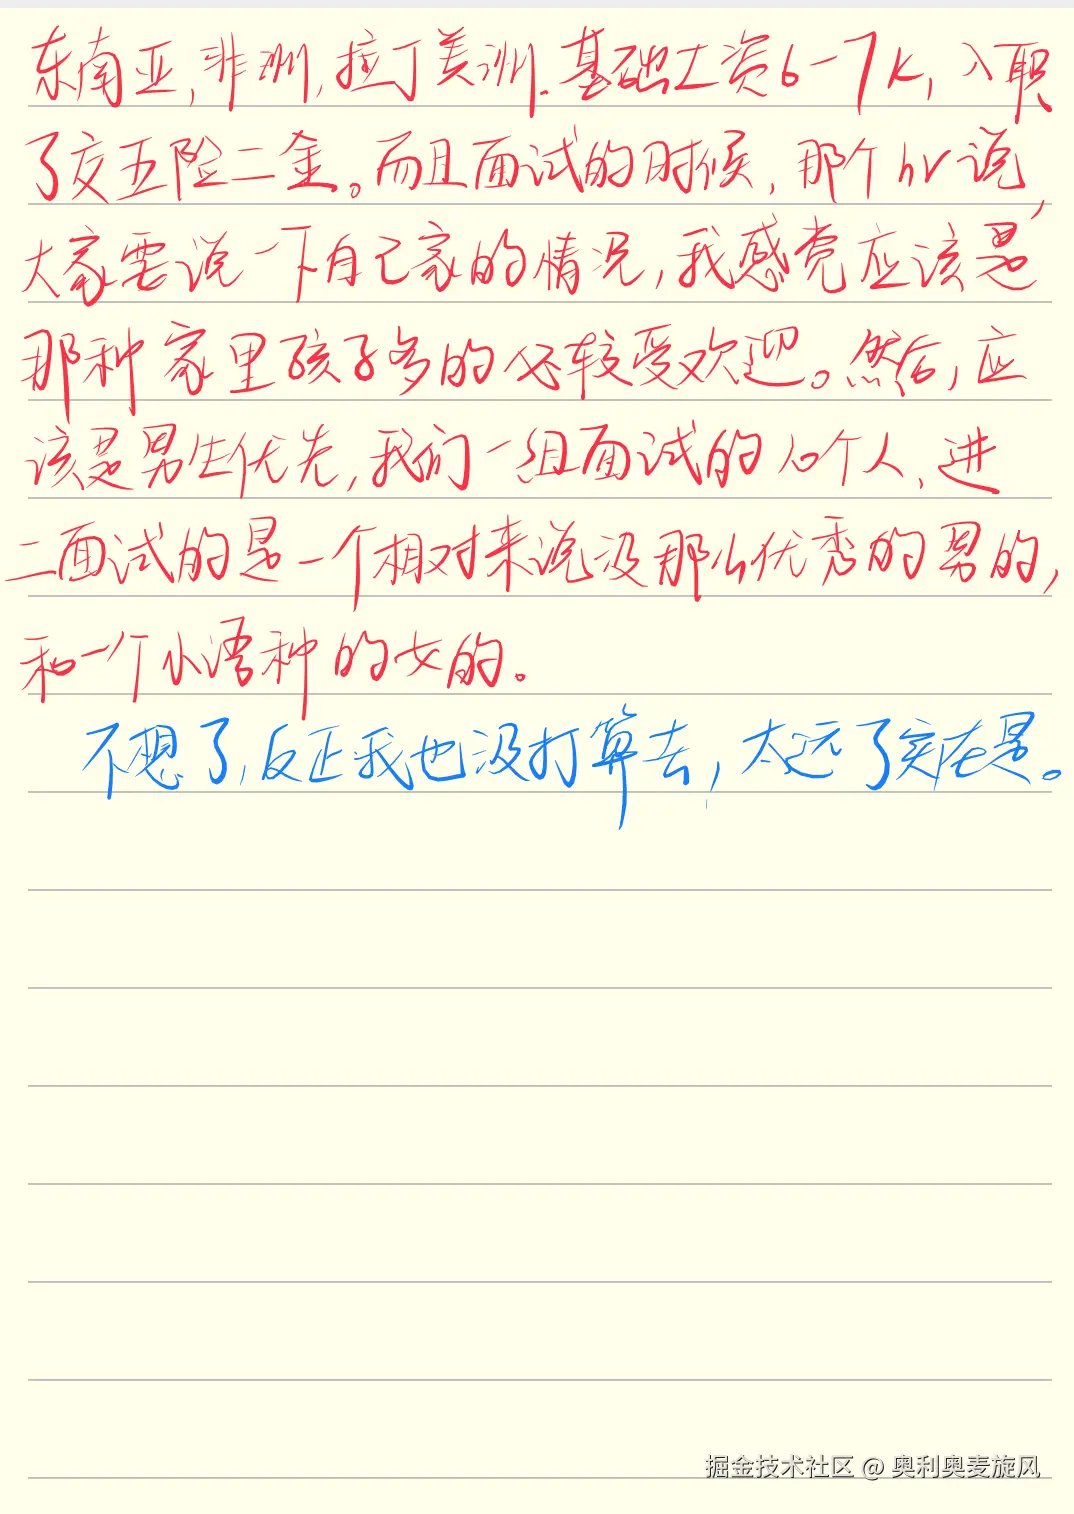 东南亚,非洲,拉丁美洲.基础工资6-7k,入职
了交五险二金。而且面试的时候,那个hr说,
大家要说一下自己家的情况,我感觉应该是
那种家里孩子多的比较受欢迎。然后,应
该是男生优先,我们一组面试的10个人,进
二面试的是一个相对来说没那么优秀的男的,
和一个小语种的女的。
不想了,反正我也没打算去,太远了实在是。
掘金技术社区 @ 奥利奥麦旋风